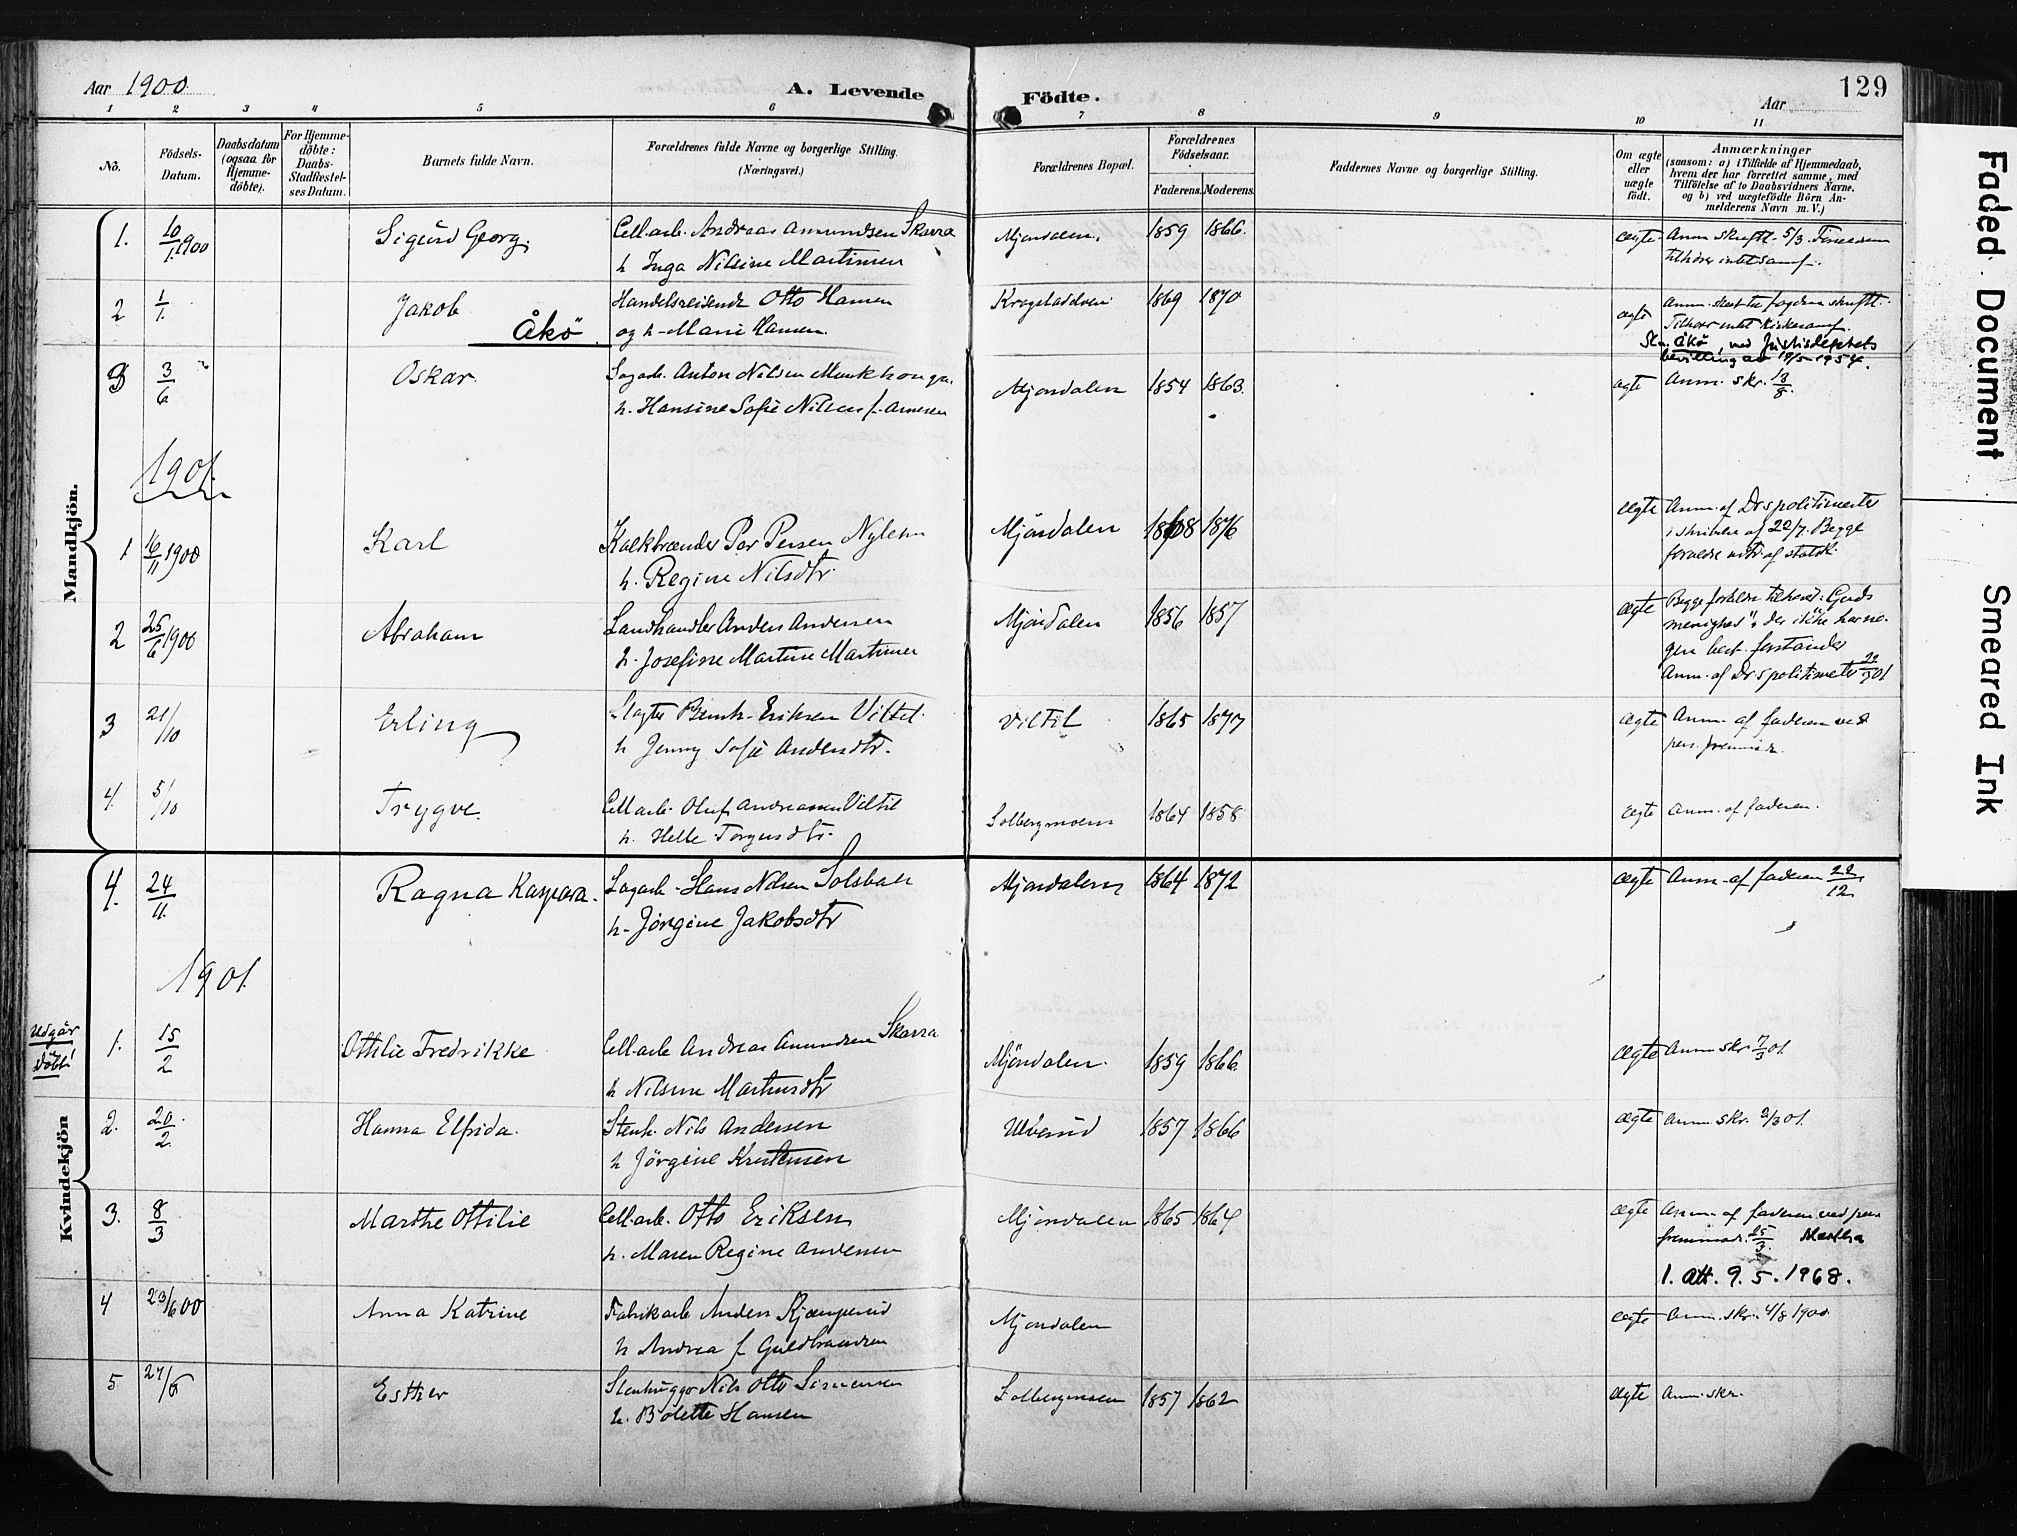 Aar 1900.
A. Levende Födte.
Aar
129
1 2 3 4 5 6 7 8 9 10 11
No.
Födsels-Datum.
Daabsdatum (ogsaa for Hjemme-döbte).
For Hjemme-döbte: Daabs-Stadfæstel-ses Datum.
Barnets fulde Navn.
Forældrenes fulde Navne og borgerlige Stilling. (Næringsvei.)
Forældrenes Bopæl.
Forældrenes Födselsaar.
Faderens. Moderens.
Faddernes Navne og borgerlige Stilling.
Om ægte eller uægte födt.
Anmærkninger
(saasom: a) i Tilfælde af Hjemmedaab, hvem der har forrettet samme, med Tilföielse af to Daabsvidners Navne. og b) ved uægtefödte Börn An-melderens Navn m. V.)
Mandkjön.
1. 10/1 1900 Sigurd Georg. Cell.arb. Andreas Amundsen Skarra Mjöndalen. 1859 1866. ægte Anm. skriftl. 5/3. Forældrene
h. Inga Nilsine Martinsen tilhører intet samf.
2 1/1. Jakob Handelsreisende Otto Hansen 1869 1870 ægte
Åkö. og h. Marie Hansen. Tilhører intet kirkesamf.
Åkö, ved Justisdeptets
bevilling av 18/5-1954.
3 3/6 Oskar. Anton Nilsen Mjöndalen 1854 1863. ægte Anm. skr. 13/8.
h. Hansine Sofie Nilsen f. Arnesen
1901.
1. 16/11 1900 Karl Kalkbrænder Per Persen Mjöndalen 1868 1876 ægte Anm. af Drs politimester
h. Regine Nilsdtr. i skrivelse af 20/7. Begge
forældre udtr. af statsk.
2 25/6 1900 Abraham Landhandler Anders Andersen Mjöndalen 1856 1857 ægte Begge forældre tilhører: Guds
h. Josefine Martine Martinsen menighed", der ikke har no-
gen best. forstander
Anm. af Drs politimester
3 21/10 Erling Eriksen Viltil Viltil 1865 1877 ægte Anm. af faderen ved
h. Jenny Sofie Andersdtr. pers. fremmöde.
4. 5/10 Trygve. Cell.arb. Oluf Andreassen Viltil Solbergmoen 1864 1858 ægte Anm. af faderen.
h. Helle Torgersdtr.
Kvindekjön
4. 24/11. Ragna Kaspara. Sagarb. Hans Nilsen Solsbak Mjöndalen 1864 1872 ægte Anm. af faderen 22/12
h. Jørgine Jakobsdtr
1901.
Udgår
Döbt!
1. 15/2 Ottilie Fredrikke Cell.arb. Andreas Amundsen Skarra Mjöndalen. 1859 1866. ægte Anm. skr. 7/3 01.
h. Nilsine Martinsdtr
2. 20/2. Hanna Elfrida. Stenh. Nils Andersen Ulverud 1857 1866 ægte Anm. skr. 01.
h. Jörgine Kristensen
3. 8/3 Marthe Ottilie Cell.arb. Otto Eriksen Mjöndalen 1865 1864 ægte Anm. af faderen ved pers
h. Maren Regine Andersen fremmöde. 25/3. Martha
1. att. 9.5.1968.
4 23/6 00 Anna Katrine Fabrikarb. Anders Kjæmperud Mjöndalen ægte Anm. skr. 4/8 1900.
h. Andrea f. Guldbrandsen
5. Esther Stenhugger Nils Otto Simensen Solbergmoen 1857 1862 ægte Anm. skr.
h. Bolette Hansen
Faded Document
Smeared Ink